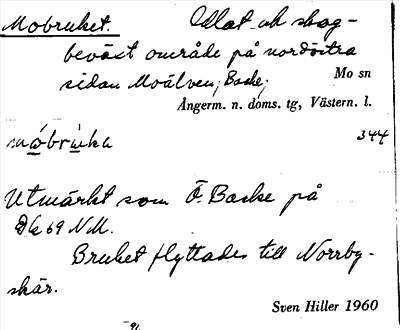 Mobruket. Slåt- och skog-
beväxt område på nordöstra
sidan Moälven; Backe;
Mo sn
Ångerm. n. doms. tg, Västern. l.
måbrùka 344
Utmärkt som Ö. Backe på
Bk 69 N.M.
Bruket flyttades till Norrby-
skär.
Sven Hiller 1960